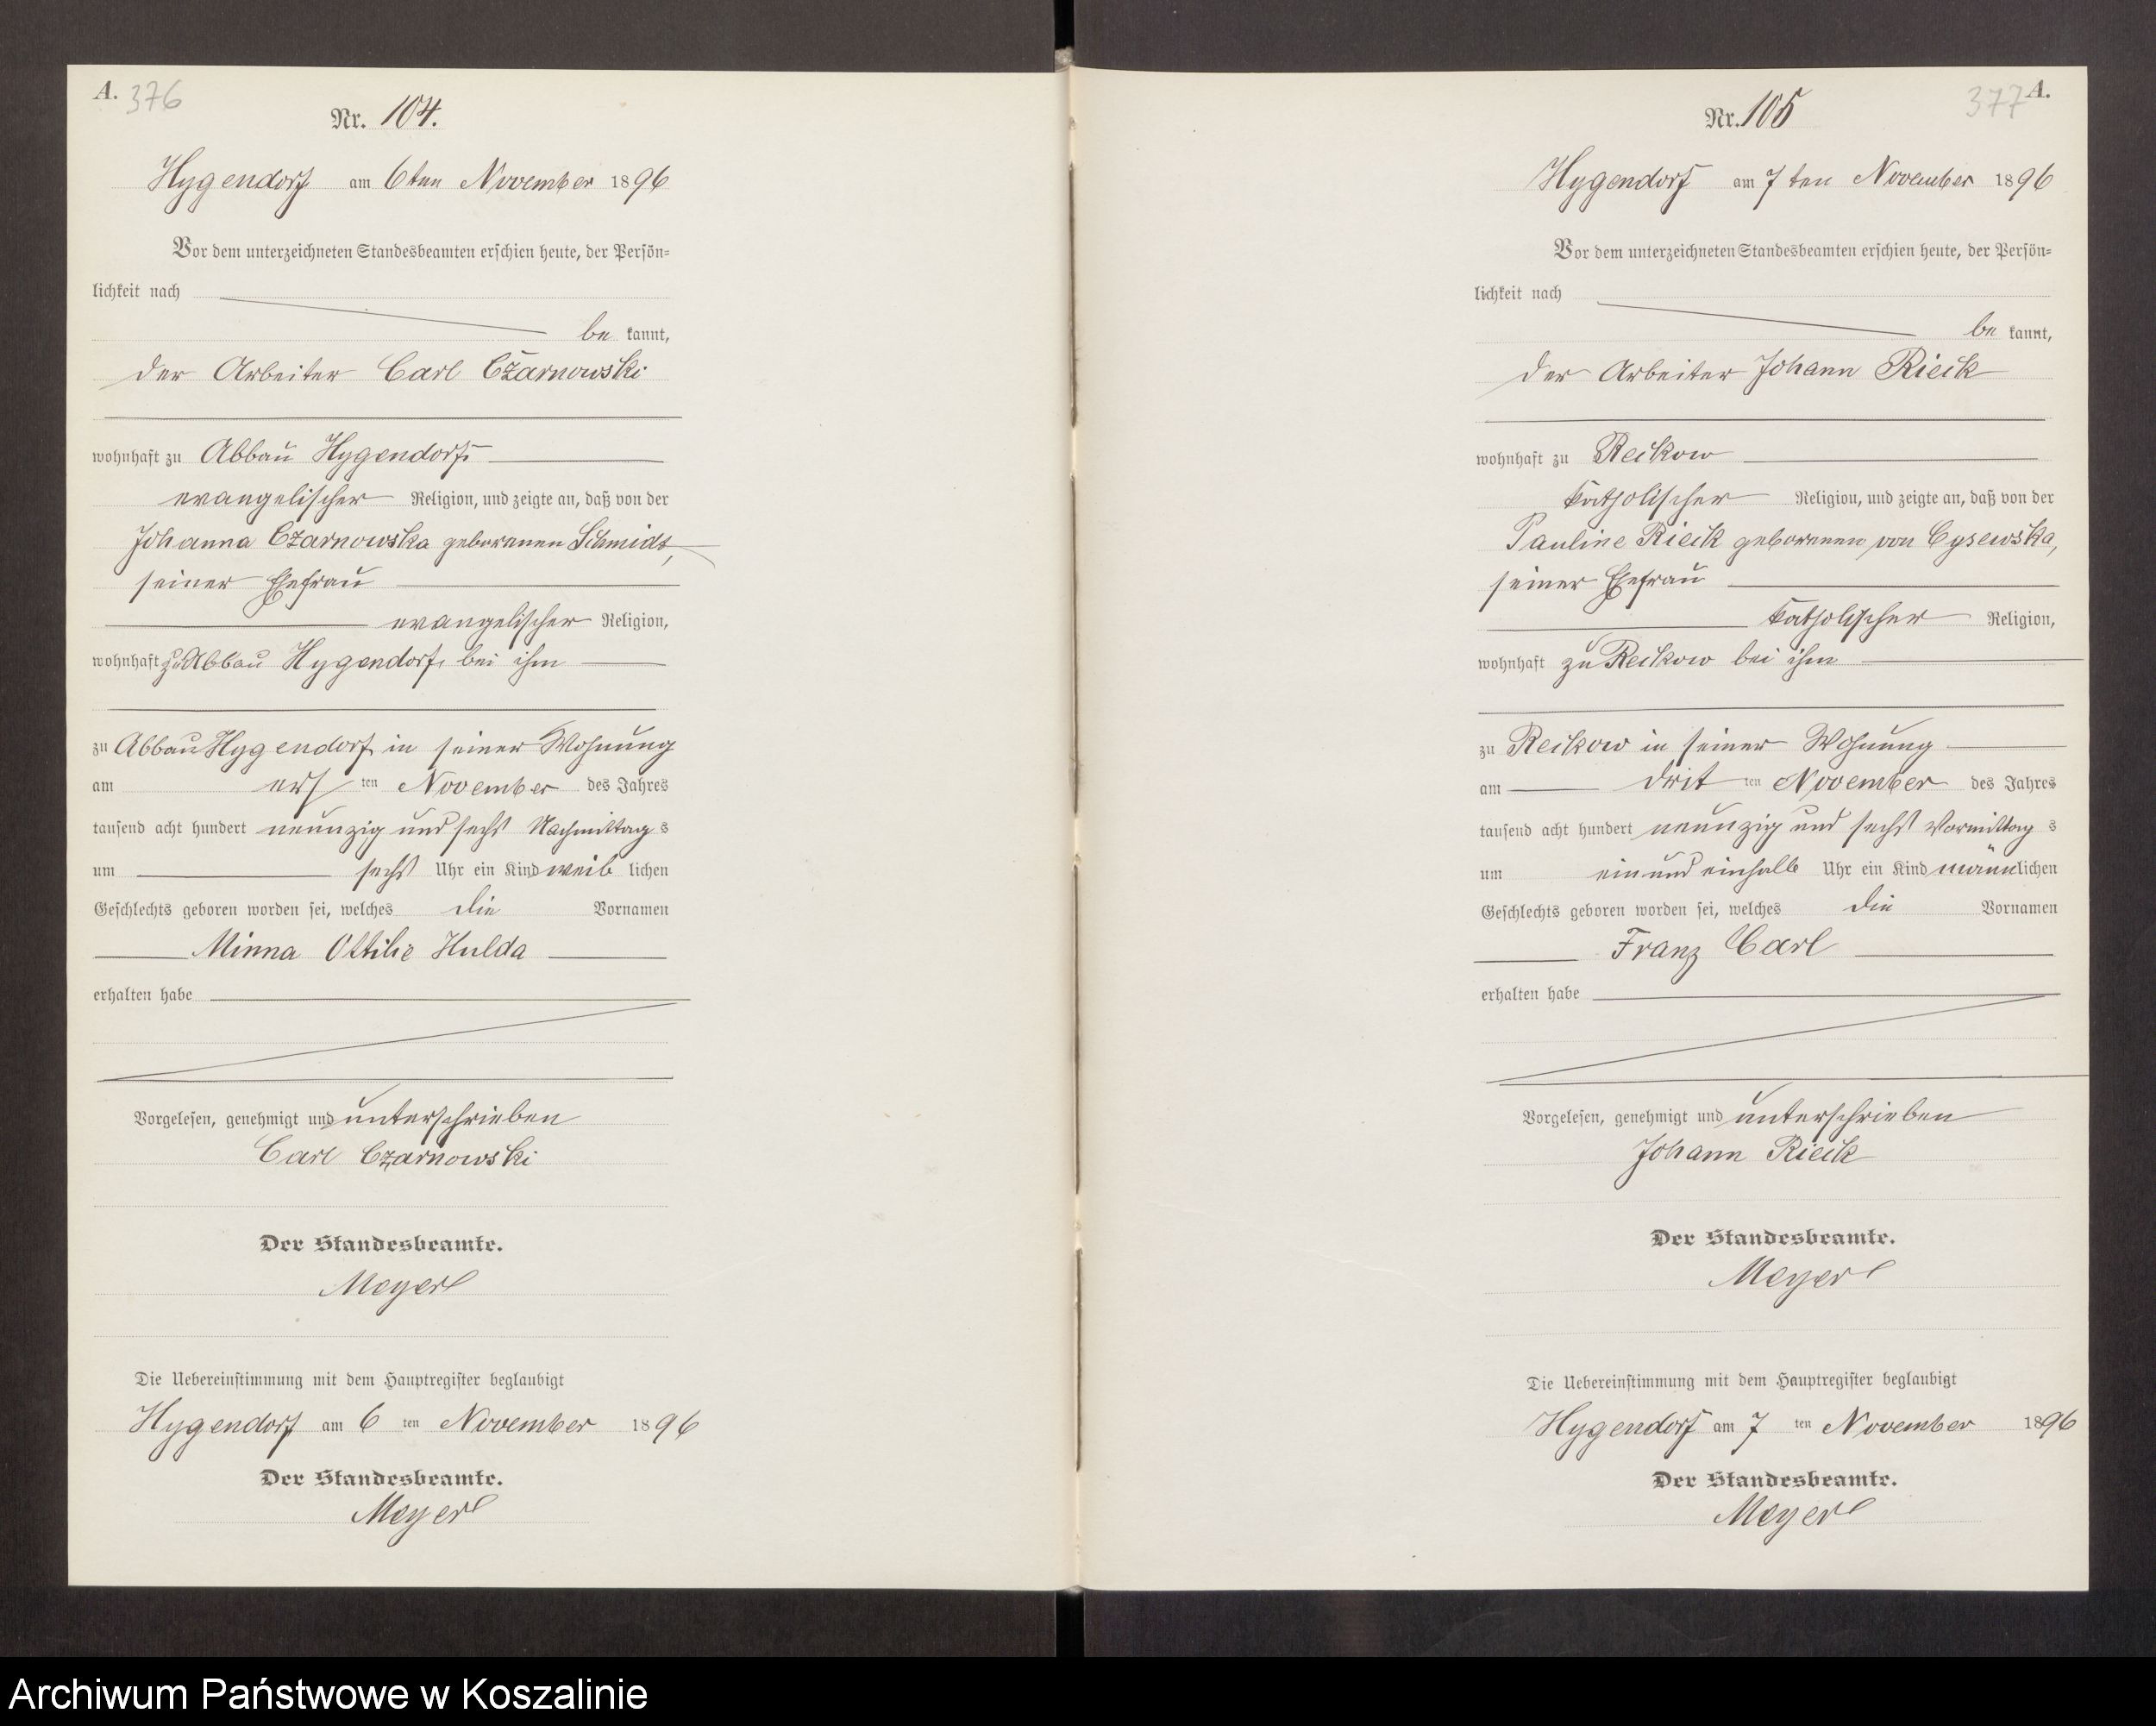 A. 376
Nr. 104.
Hygendorf am 6ten November 1896
Vor dem unterzeichneten Standesbeamten erschien heute, der Persön-
lichkeit nach
be kannt,
der Arbeiter Carl Czarnowski
wohnhaft zu Abbau Hygendorf
evangelischer Religion, und zeigte an, daß von der
Johanna Czarnowska geborenen Schmidt,
seiner Ehefrau
evangelischer Religion,
wohnhaft zu Abbau Hygendorf, bei ihm
zu Abbau Hygendorf in seiner Wohnung
am ersten November des Jahres
tausend acht hundert neunzig und sechs Nachmittags
um sechs Uhr ein Kind weiblichen
Geschlechts geboren worden sei, welches die Vornamen
Minna Ottilie Hulda
erhalten habe
Vorgelesen, genehmigt und unterschrieben
Carl Czarnowski
Der Standesbeamte.
Meyer
Die Uebereinstimmung mit dem Hauptregister beglaubigt
Hygendorf am 6ten November 1896
Der Standesbeamte.
Meyer
377 A.
Nr. 105
Hygendorf am 7ten November 1896
Vor dem unterzeichneten Standesbeamten erschien heute, der Persön-
lichkeit nach
be kannt,
der Arbeiter Johann Rieck
wohnhaft zu Reckow
katholischer Religion, und zeigte an, daß von der
Pauline Rieck geborenen von Cysewska,
seiner Ehefrau
katholischer Religion,
wohnhaft zu Reckow bei ihm
zu Reckow in seiner Wohnung
am dritten November des Jahres
tausend acht hundert neunzig und sechs Vormittags
um ein und einhalb Uhr ein Kind männlichen
Geschlechts geboren worden sei, welches die Vornamen
Franz Carl
erhalten habe
Vorgelesen, genehmigt und unterschrieben
Johann Rieck
Der Standesbeamte.
Meyer
Die Uebereinstimmung mit dem Hauptregister beglaubigt
Hygendorf am 7ten November 1896
Der Standesbeamte.
Meyer
Archiwum Państwowe w Koszalinie